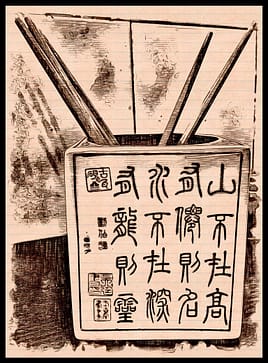 山不在高
有僊則名
水不在深
有龍則靈